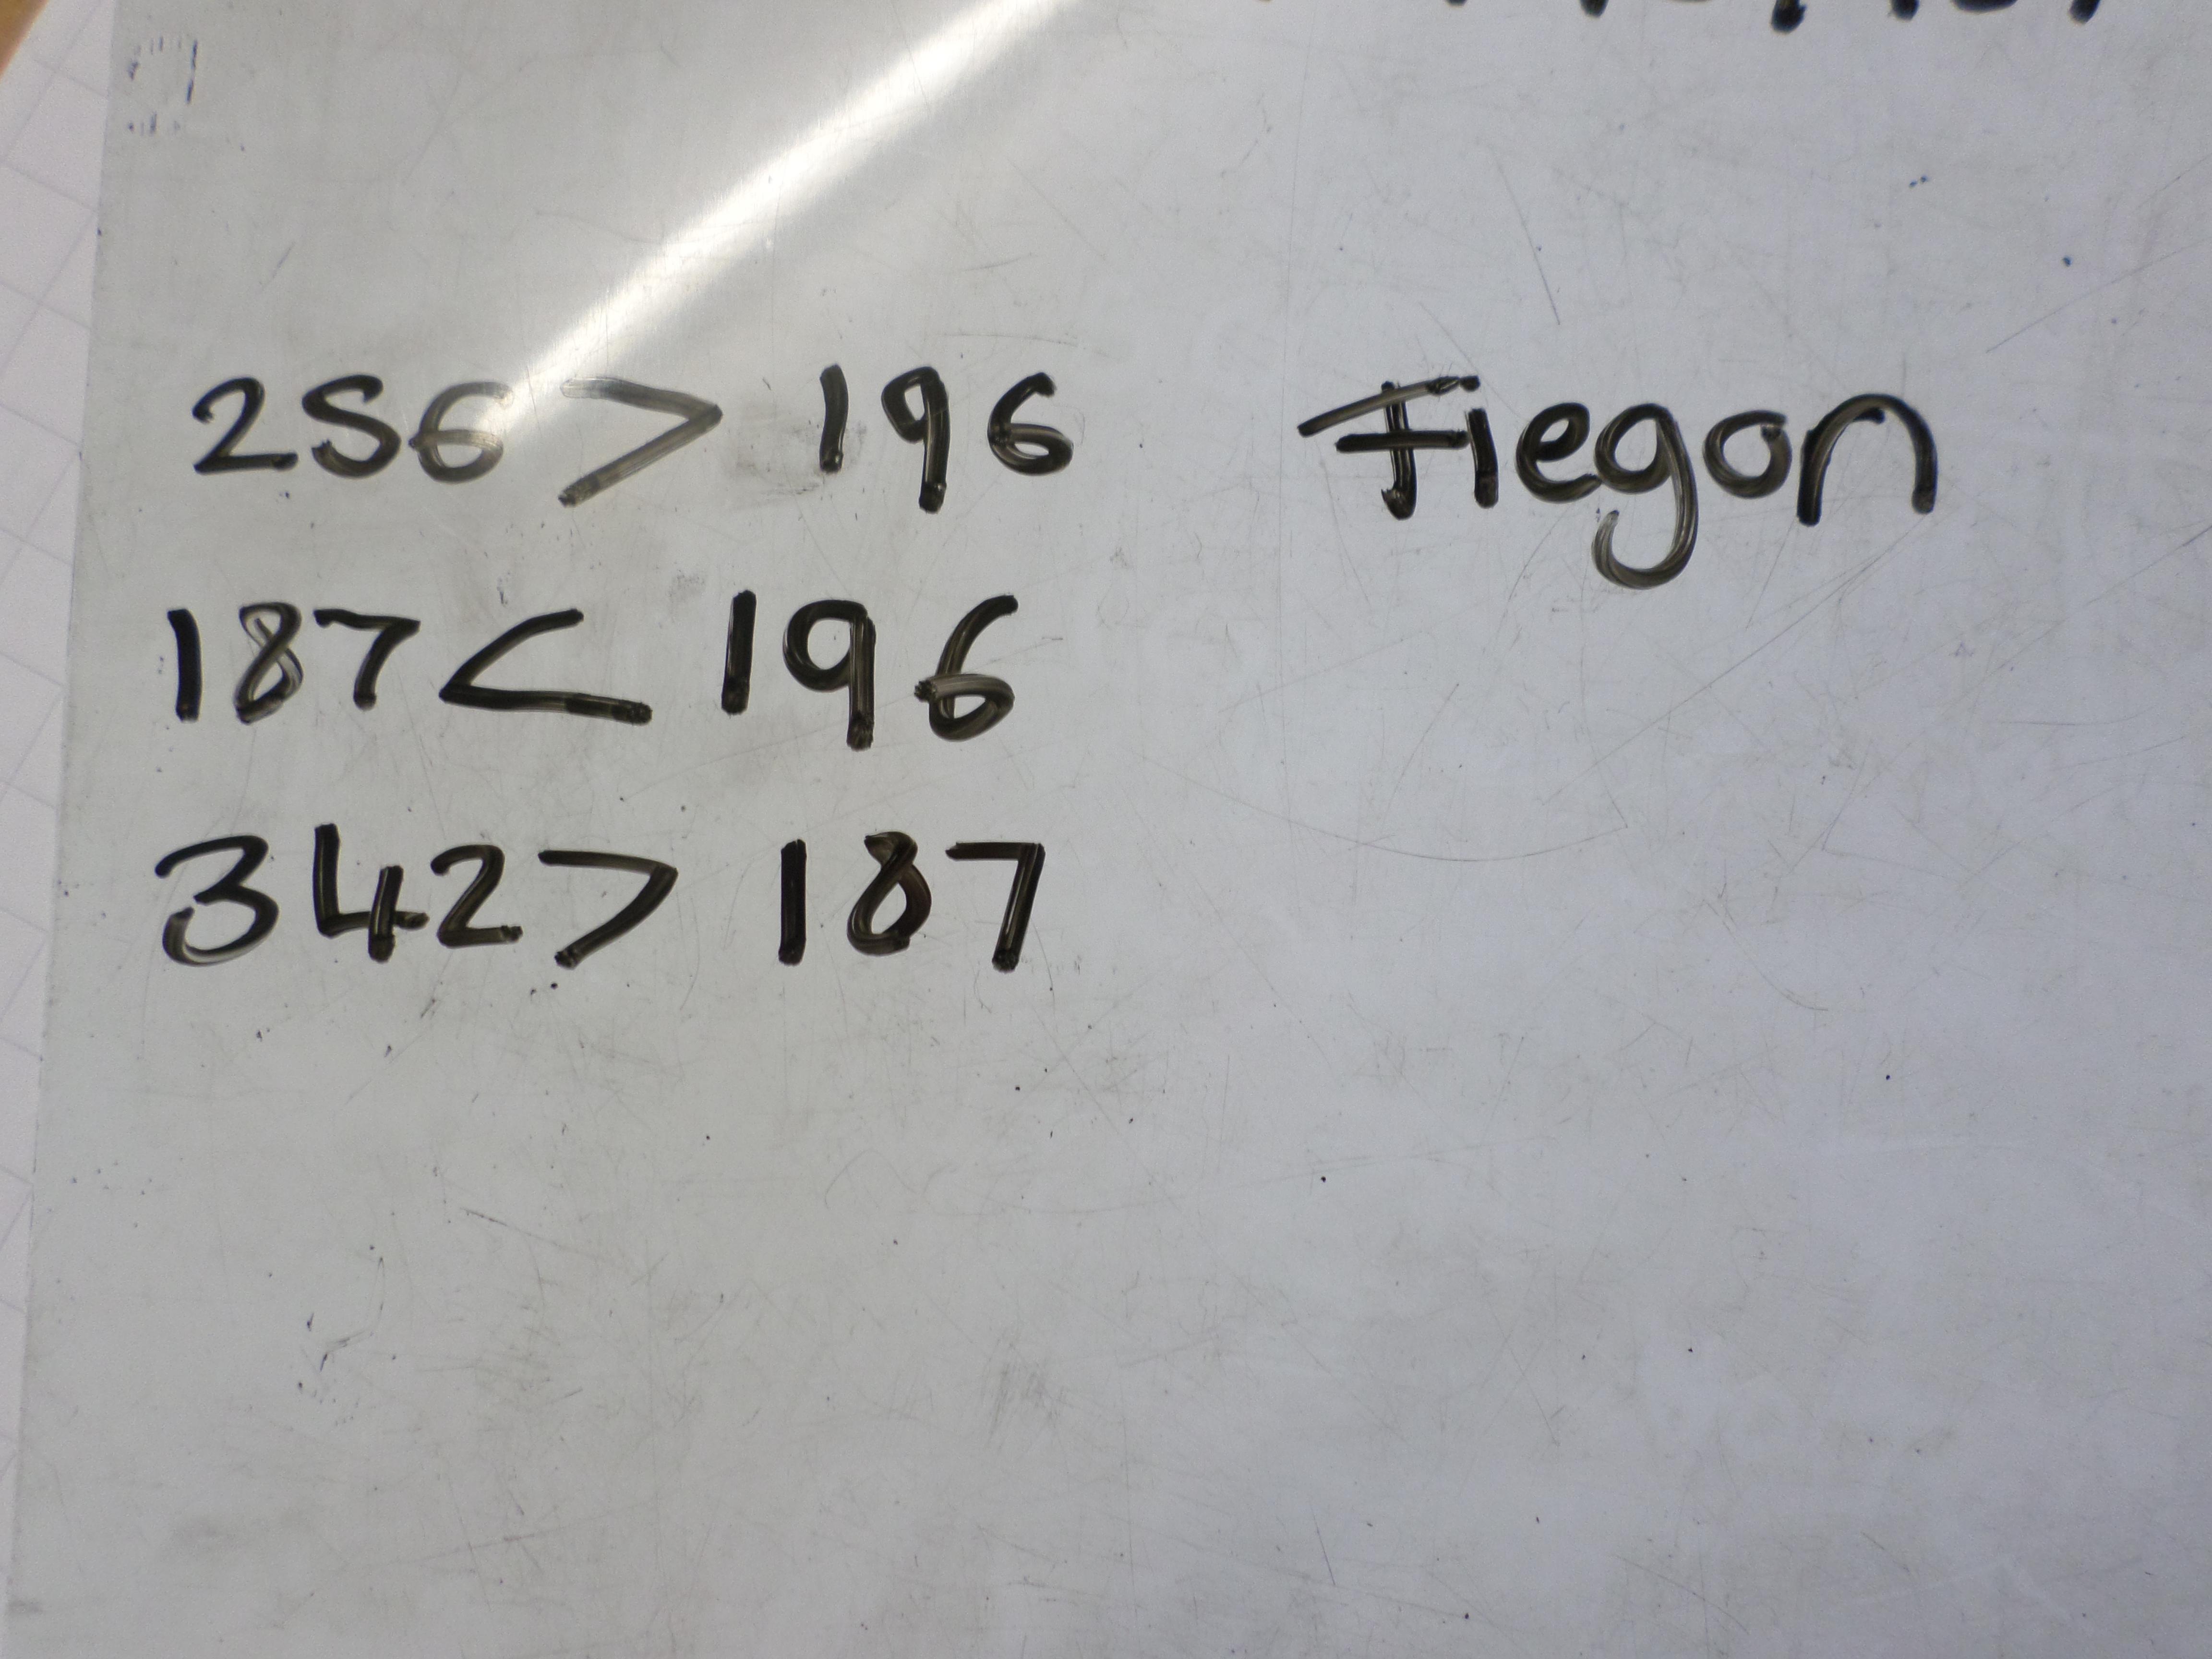 256 > 196 Fiegon
187 < 196
342 > 187